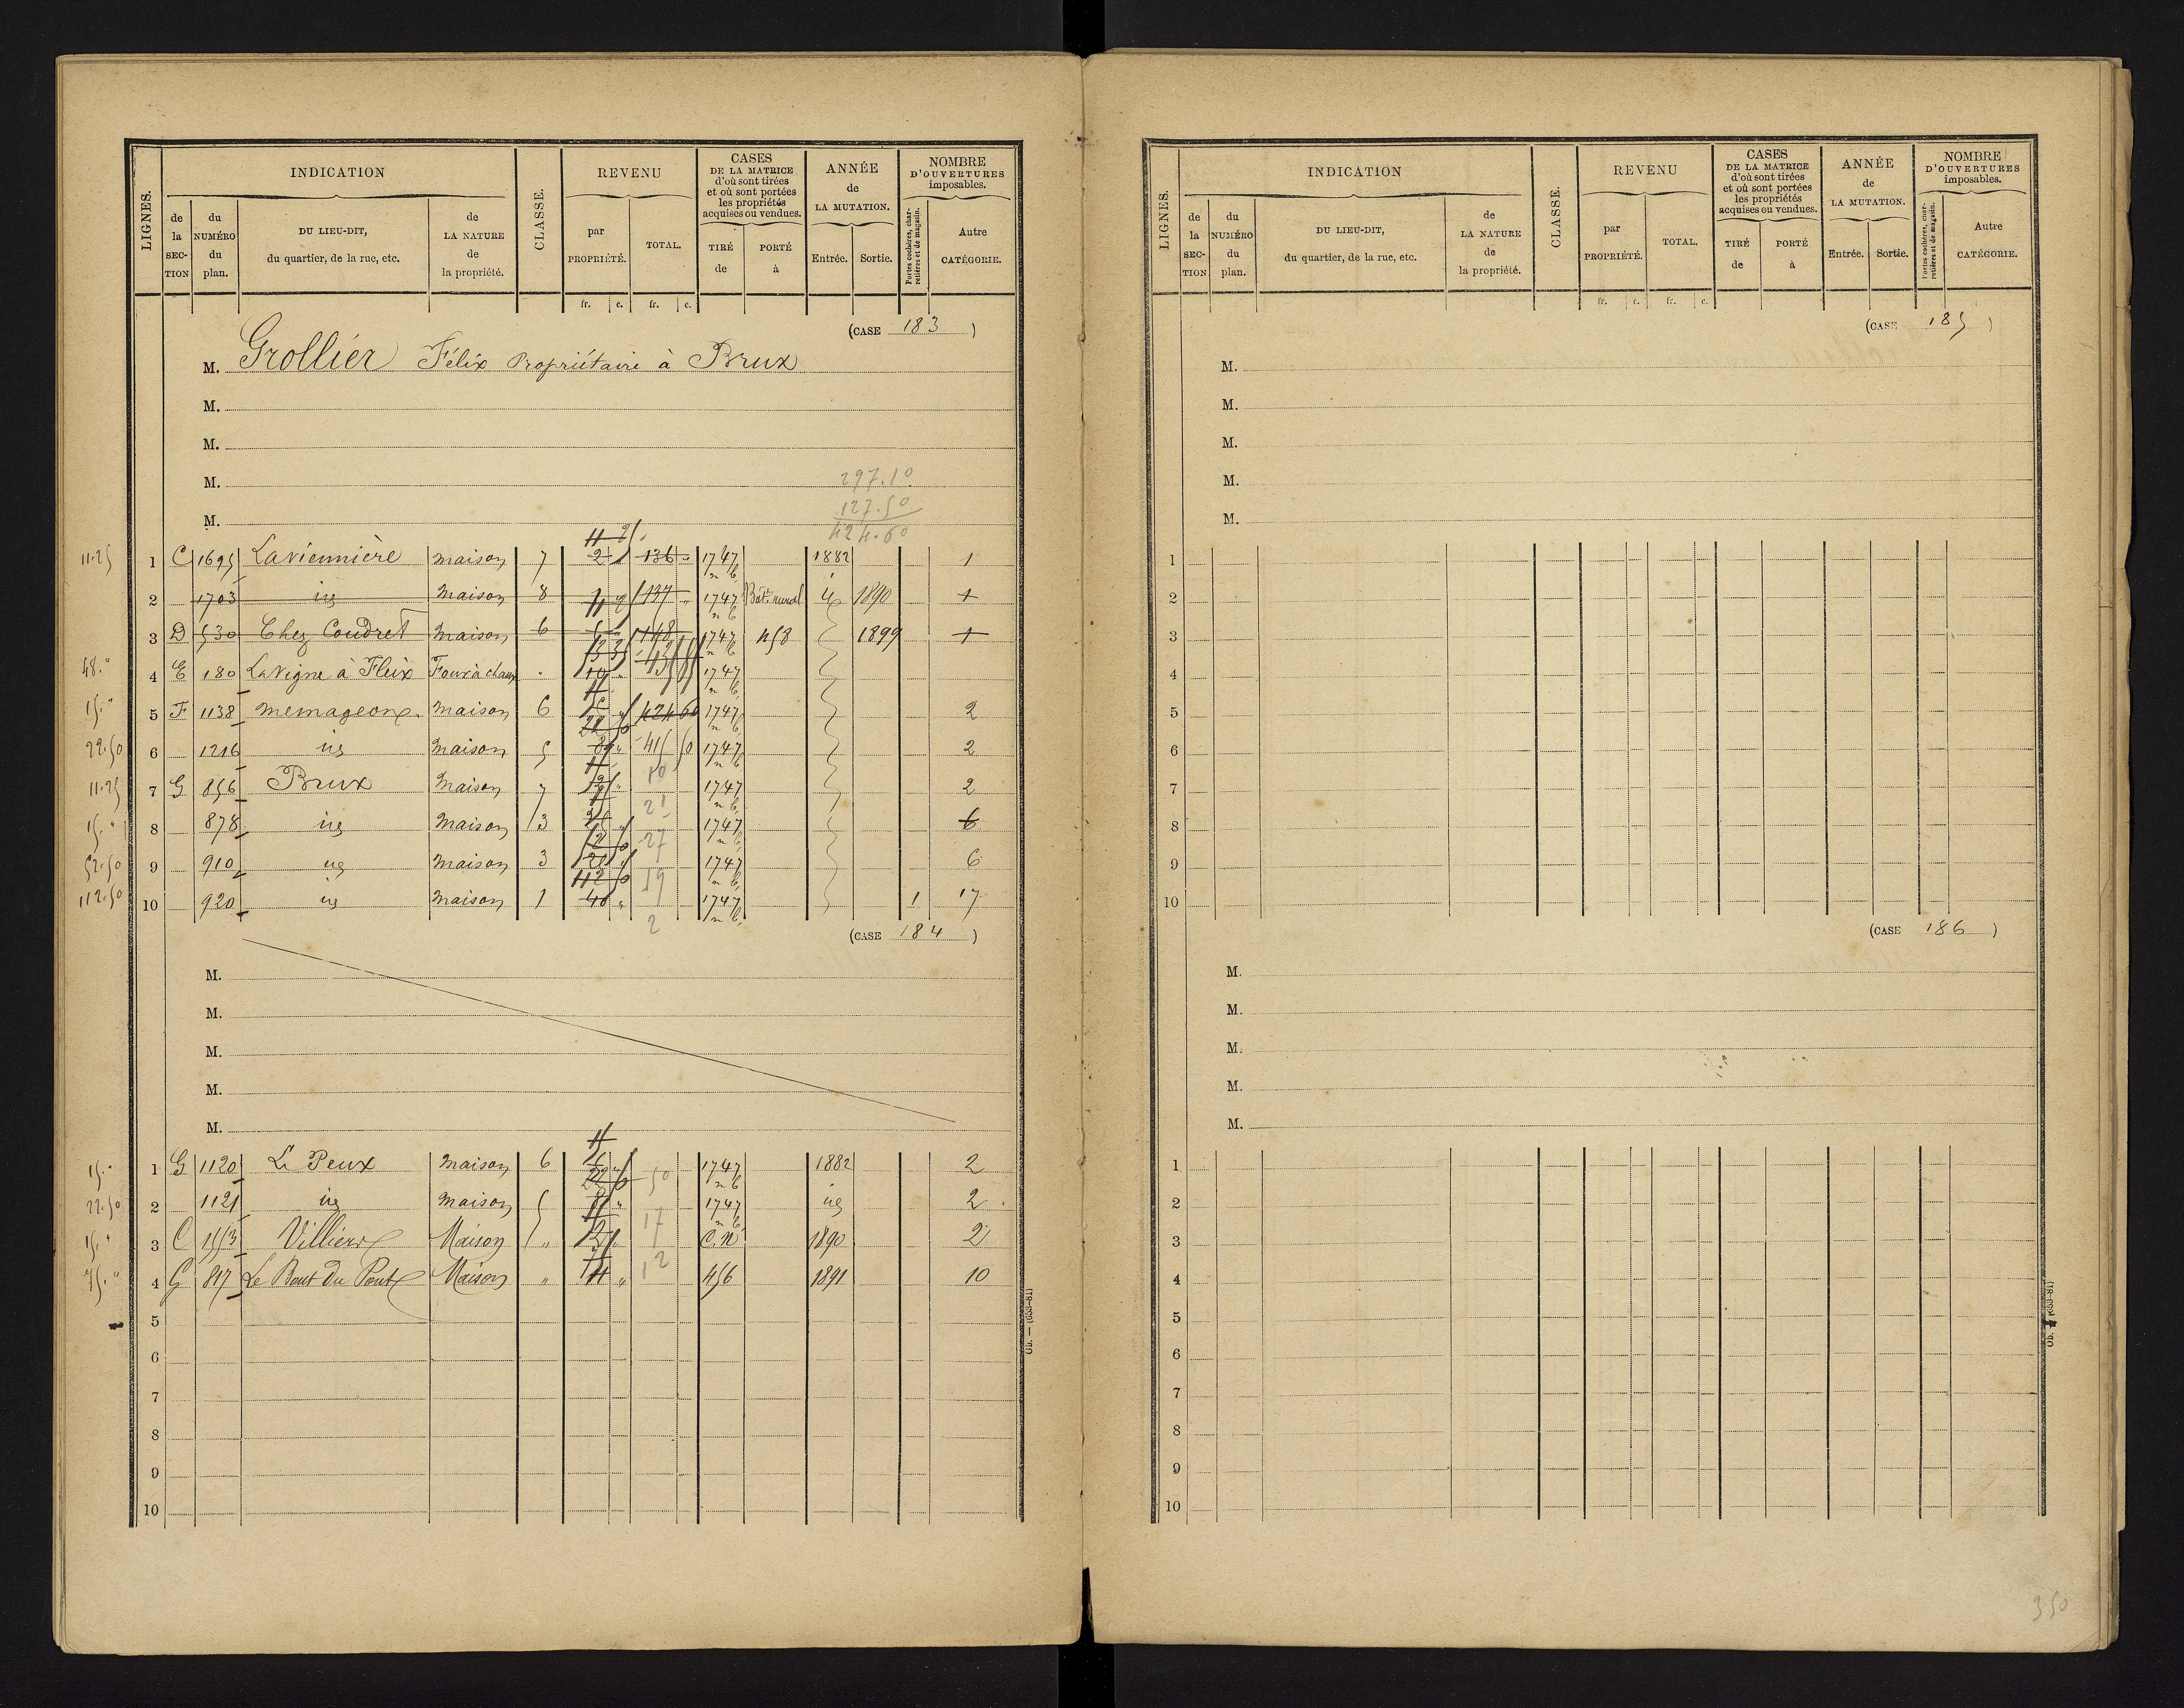 LIGNES. INDICATION CLASSE. REVENU CASES DE LA MATRICE d'où sont tirées et où sont portées les propriétés acquises ou vendues. ANNÉE de LA MUTATION. NOMBRE D'OUVERTURES imposables.
de la SECTION du NUMÉRO du plan. DU LIEU-DIT, du quartier, de la rue, etc. de LA NATURE de la propriété. par PROPRIÉTÉ. TOTAL. TIRÉ de PORTÉ à Entrée. Sortie. Portes cochères, charretières et de magasin. Autre CATÉGORIE.
fr. c. fr. c.
(CASE 183 )
M. Grollier Félix Propriétaire à Brux
M.
M.
M. 297.10
127.50
M. 424.60
11.25 1 C 1695 Laviennière maison 7 2 136 1747 1882 1
2 1703 id maison 8 137 1747 Bât. rural id 1890 1
3 D 530 Chez Coudret maison 6 148 1747 458 1899 1
48." 4 E 180 La Vigne à Fleix Four à chaux 10 1747
15." 5 F 1138 memageone maison 6 424 60 1747 2
22.50 6 1216 id maison 5 415 50 1747 2
11.25 7 G 856 Brux maison 7 10 1747 2
15." 8 878 id maison 3 21 1747 6
52.50 9 910 id maison 3 27 1747 6
112.50 10 920 id maison 1 112 50 40 19 1747 1 17
2
(CASE 184 )
M.
M.
M.
M.
M.
15." 1 G 1120 Le Peux maison 6 1747 1882 2
22.50 2 1121 id maison 5 50 1747 id 2
15." 3 C 1553 Villiers Maison " 12 17 C.N 1890 2
75." 4 G 817 Le Bout du Pont Maison " 12 456 1891 10
5
6
7
8
9
10
Ob. — (653-81)
LIGNES. INDICATION CLASSE. REVENU CASES DE LA MATRICE d'où sont tirées et où sont portées les propriétés acquises ou vendues. ANNÉE de LA MUTATION. NOMBRE D'OUVERTURES imposables.
de la SECTION du NUMÉRO du plan. DU LIEU-DIT, du quartier, de la rue, etc. de LA NATURE de la propriété. par PROPRIÉTÉ. TOTAL. TIRÉ de PORTÉ à Entrée. Sortie. Portes cochères, charretières et de magasin. Autre CATÉGORIE.
fr. c. fr. c.
(CASE 185 )
M.
M.
M.
M.
M.
1
2
3
4
5
6
7
8
9
10
(CASE 186 )
M.
M.
M.
M.
M.
1
2
3
4
5
6
7
8
9
10
Ob. (653-81)
350